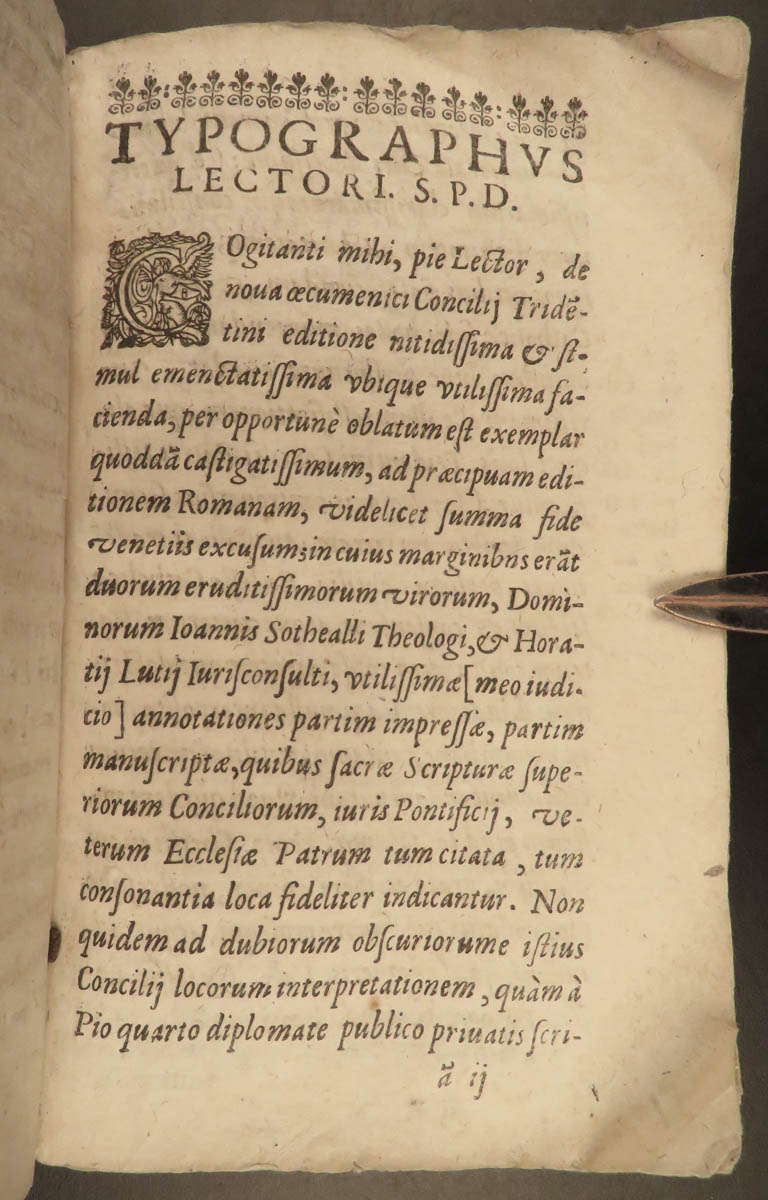 TYPOGRAPHVS
LECTORI. S. P. D.
COgitanti mihi, pie Lector, de
noua œcumenici Concilij Tridẽ-
tini editione nitidiſſima & ſi-
mul emenctatiſſima vbique vtiliſſima fa-
cienda, per opportunè oblatum eſt exemplar
quoddã caſtigatiſſimum, ad præcipuam edi-
tionem Romanam, videlicet ſumma fide
venetiis excuſum; in cuius marginibns erãt
duorum eruditiſſimorum virorum, Domi-
norum Ioannis Sothealli Theologi, & Hora-
tij Lutij Iuriſconſulti, vtiliſſimæ [meo iudi-
cio] annotationes partim impreſſæ, partim
manuſcriptæ, quibus ſacræ Scripturæ ſupe-
riorum Conciliorum, iuris Pontificij, ve-
terum Eccleſiæ Patrum tum citata, tum
conſonantia loca fideliter indicantur. Non
quidem ad dubiorum obſcuriorume iſtius
Concilij locorum interpretationem, quàm à
Pio quarto diplomate publico priuatis ſcri-
ã ij